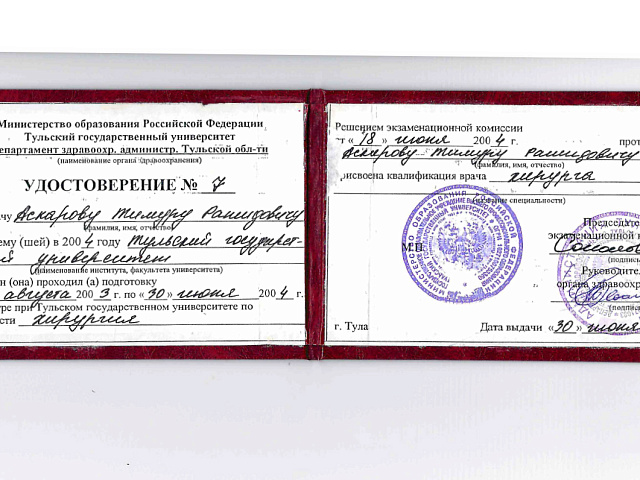 Министерство образования Российской Федерации
Тульский государственный университет
епартамент здравоохр. администр. Тульской обл-ти
(наименование органа здравоохранения)
УДОСТОВЕРЕНИЕ № 7
чу Аскарову Тимуру Рашидовичу
(фамилия, имя, отчество)
ему (шей) в 2004 году Тульский государст-
й университет
(наименование института, факультета университета)
н (она) проходил (а) подготовку
августа 2003 г. по «30» июня 2004 г.
уре при Тульском государственном университете по
ости хирургия
Решением экзаменационной комиссии
т « 18 » июня 2004 г. прот
Аскарову Тимуру Рашидовичу
(фамилия, имя, отчество)
рисвоена квалификация врача хирурга
(название специальности)
Председате
экзаменационной к
М.П.
(подпис
Руководите
органа здравоохр
(подпис
г. Тула Дата выдачи «30» июня